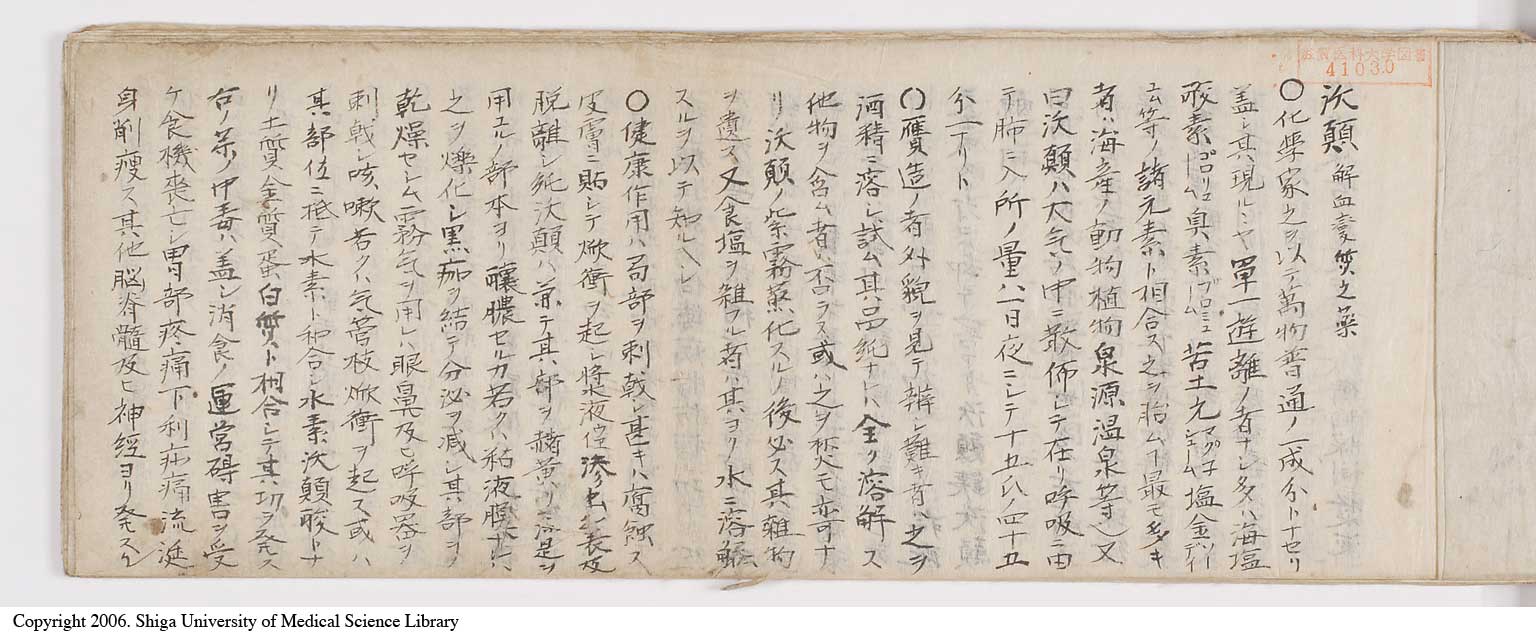 沃顛 解血毒質之藥
〇化學家之ヲ以テ萬物普通ノ一成分トナセリ
盖シ其現ルヽヤ單一遊離ノ者ナシ多クハ海塩
酸素コロリユム臭素ブロミユム苦土元マグ子シユーム塩金
等ノ諸元素ト相合ス之ヲ胎ム最モ多キ
者ハ海産ノ動物植物泉源温泉等又
曰沃顛ハ大気ノ中ニ散佈シテ在リ呼吸ニ由
テ肺ニ入所ノ量ハ一日夜ニシテ十五氏ノ四十五
分一ナリト
〇贋造ノ者外貌ヲ見テ辨シ難キ者ハ之ヲ
酒精ニ溶シ試ム其品純ナレハ全ク溶解ス
他物ヲ含ム者ハ否ラス或ハ之ヲ焚クモ亦可ナ
リ沃顛ノ紫霧蒸化スルノ後必ス其雑物
ヲ遺ス又食塩ヲ雑フル者ハ其ヨリ水ニ溶解
スルヲ以テ知ルヘシ
〇健康作用ハ局部ヲ刺戟シ甚キハ腐蝕ス
皮膚ニ貼シテ焮衝ヲ起シ漿液滲出シ表皮
脱離シ純沃顛ハ兼テ其部ヲ赭黄ニ染是ヲ
用ユルノ部本ヨリ釀膿セルカ若クハ粘液膜ナレハ
之ヲ爍化シ黒痂ヲ結テ分泌ヲ減シ其部ヲ
乾燥セシム霧気ヲ用レハ眼鼻及ヒ呼吸器ヲ
刺戟シ咳嗽若クハ気管枝焮衝ヲ起ス或ハ
其部位ニ抵テ水素ト和合シ水素沃顛酸トナ
リ土質金質蛋白質ト相合シテ其功ヲ発ス
右ノ薬ノ中毒ハ盖シ消食ノ運営碍害ヲ受
ケ食機喪亡シ胃部疼痛下利疝痛流涎
身削痩ス其他脳脊髓及ヒ神経ヨリ発スル
滋賀医科大学図書
41030
Copyright 2006. Shiga University of Medical Science Library